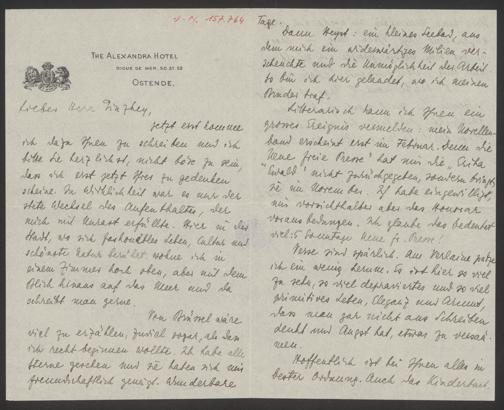 I.N. 157.764
THE ALEXANDRA HOTEL
DIGUE DE MER, 50.51.52
OSTENDE.
Lieber Herr
Jetzt erst komme
ich dazu Ihnen zu schreiben und ich
bitte Sie herzlichst, nicht böse zu sein,
dass ich erst jetzt Ihrer zu gedenken
scheine. In Wirklichkeit war es nur der
stete Wechsel des Aufenthaltes, der
mich mit Unrast erfüllte. Hier in der
Stadt, wo sich fashionables Leben, Cultur und
schönste Natur berührt wohne ich in
einem Zimmer hoch oben, aber mit dem
Blick hinaus auf das Meer und da
schreibt man gerne.
Von Brüssel wäre
viel zu erzählen, zuviel sogar, als dass
ich recht beginnen wollte. Ich habe alle
Sterne gesehen und sie haben sich mir
freundschaftlich geneigt. Wunderbare
Tage.
Dann Heyst: ein kleines Seebad, aus
dem mich ein widerwärtiges Milieu ver-
scheuchte und die Unmöglichkeit der Arbeit
so bin ich hier gelandet, wo ich meinen
Bruder traf.
Litterarisch kann ich Ihnen ein
grosses Ereignis vermelden: mein Novellen-
band erscheint erst im Februar. Denn die
"Neue freie Presse" hat mir die
"Ewald" nicht zurückgegeben, sondern bringt
sie im November. Ich habe eingewilligt,
mir vorsichtshalber aber das Honorar
vorausbedungen. Ich glaube das bedeutet
viel: 5 Sonntage Neue fr. Presse!
Verse sind spärlich. Aus Verlaine
ich ein wenig herum. Es ist hier so viel
zu sehn, so viel depraviertes und so viel
primitives Leben, Eleganz und Armut,
dass man gar nicht ans Schreiben
denkt und Angst hat, etwas zu versäu-
men.
Hoffentlich ist bei Ihnen alles in
bester Ordnung. Auch das Kinderbuch,